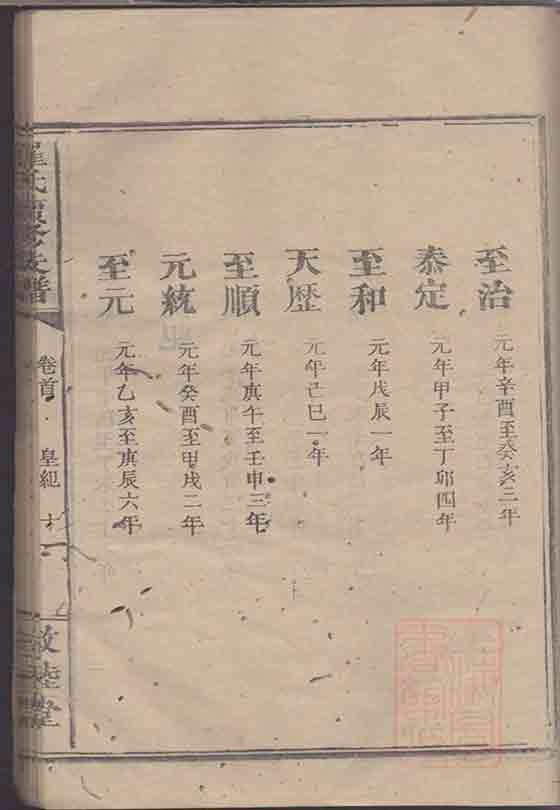 至治 元年辛酉至癸亥三年
泰定 元年甲子至丁卯四年
至和 元年戊辰一年
天歷 元年己巳一年
至順 元年庚午至壬申三年
元統 元年癸酉至甲戌二年
至元 元年乙亥至庚辰六年
氏續修支譜
卷首 皇紀
敦睦堂